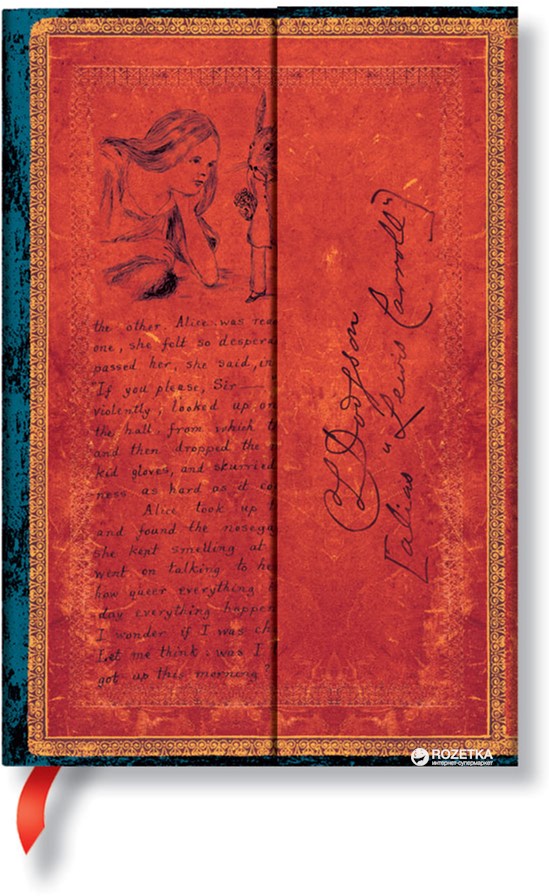 the other. Alice was rea
one, she felt so despera
passed her, she said, in
"If you please, Sir —
violently, looked up on
the hall, from which t
and then dropped the
kid gloves, and skurried
ness as hard as it co
Alice took up t
and found the nosega
she kept smelling at
went on talking to he
how queer everything
day everything happen
I wonder if I was ch
Let me think: was I
got up this morning?
CL Dodgson
[alias "Lewis Carroll"]
ROZETKA
интернет-супермаркет